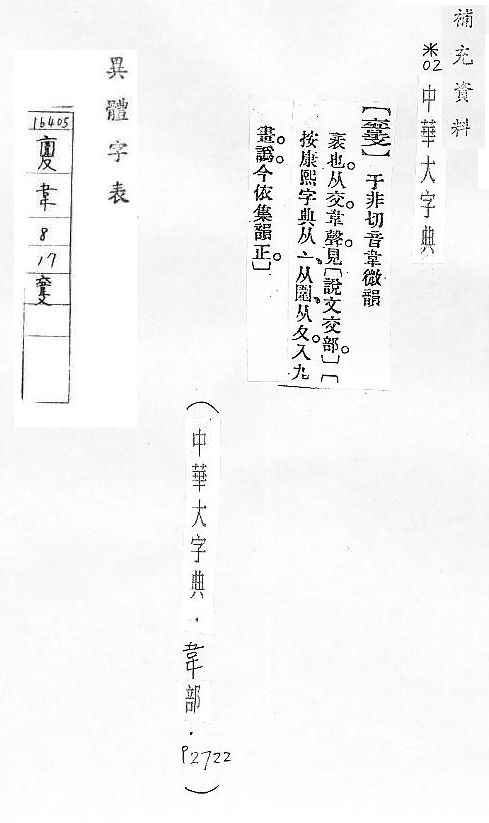 補充資料
※02 中華大字典
【】于非切音韋微韻
衺也。从交。韋聲。見[說文交部]。[
按康熙字典从亠、从、从夂。入九
畫。譌。今依集韻正。]
(中華大字典.韋部.P2722)
異體字表
16405
韋
8
17